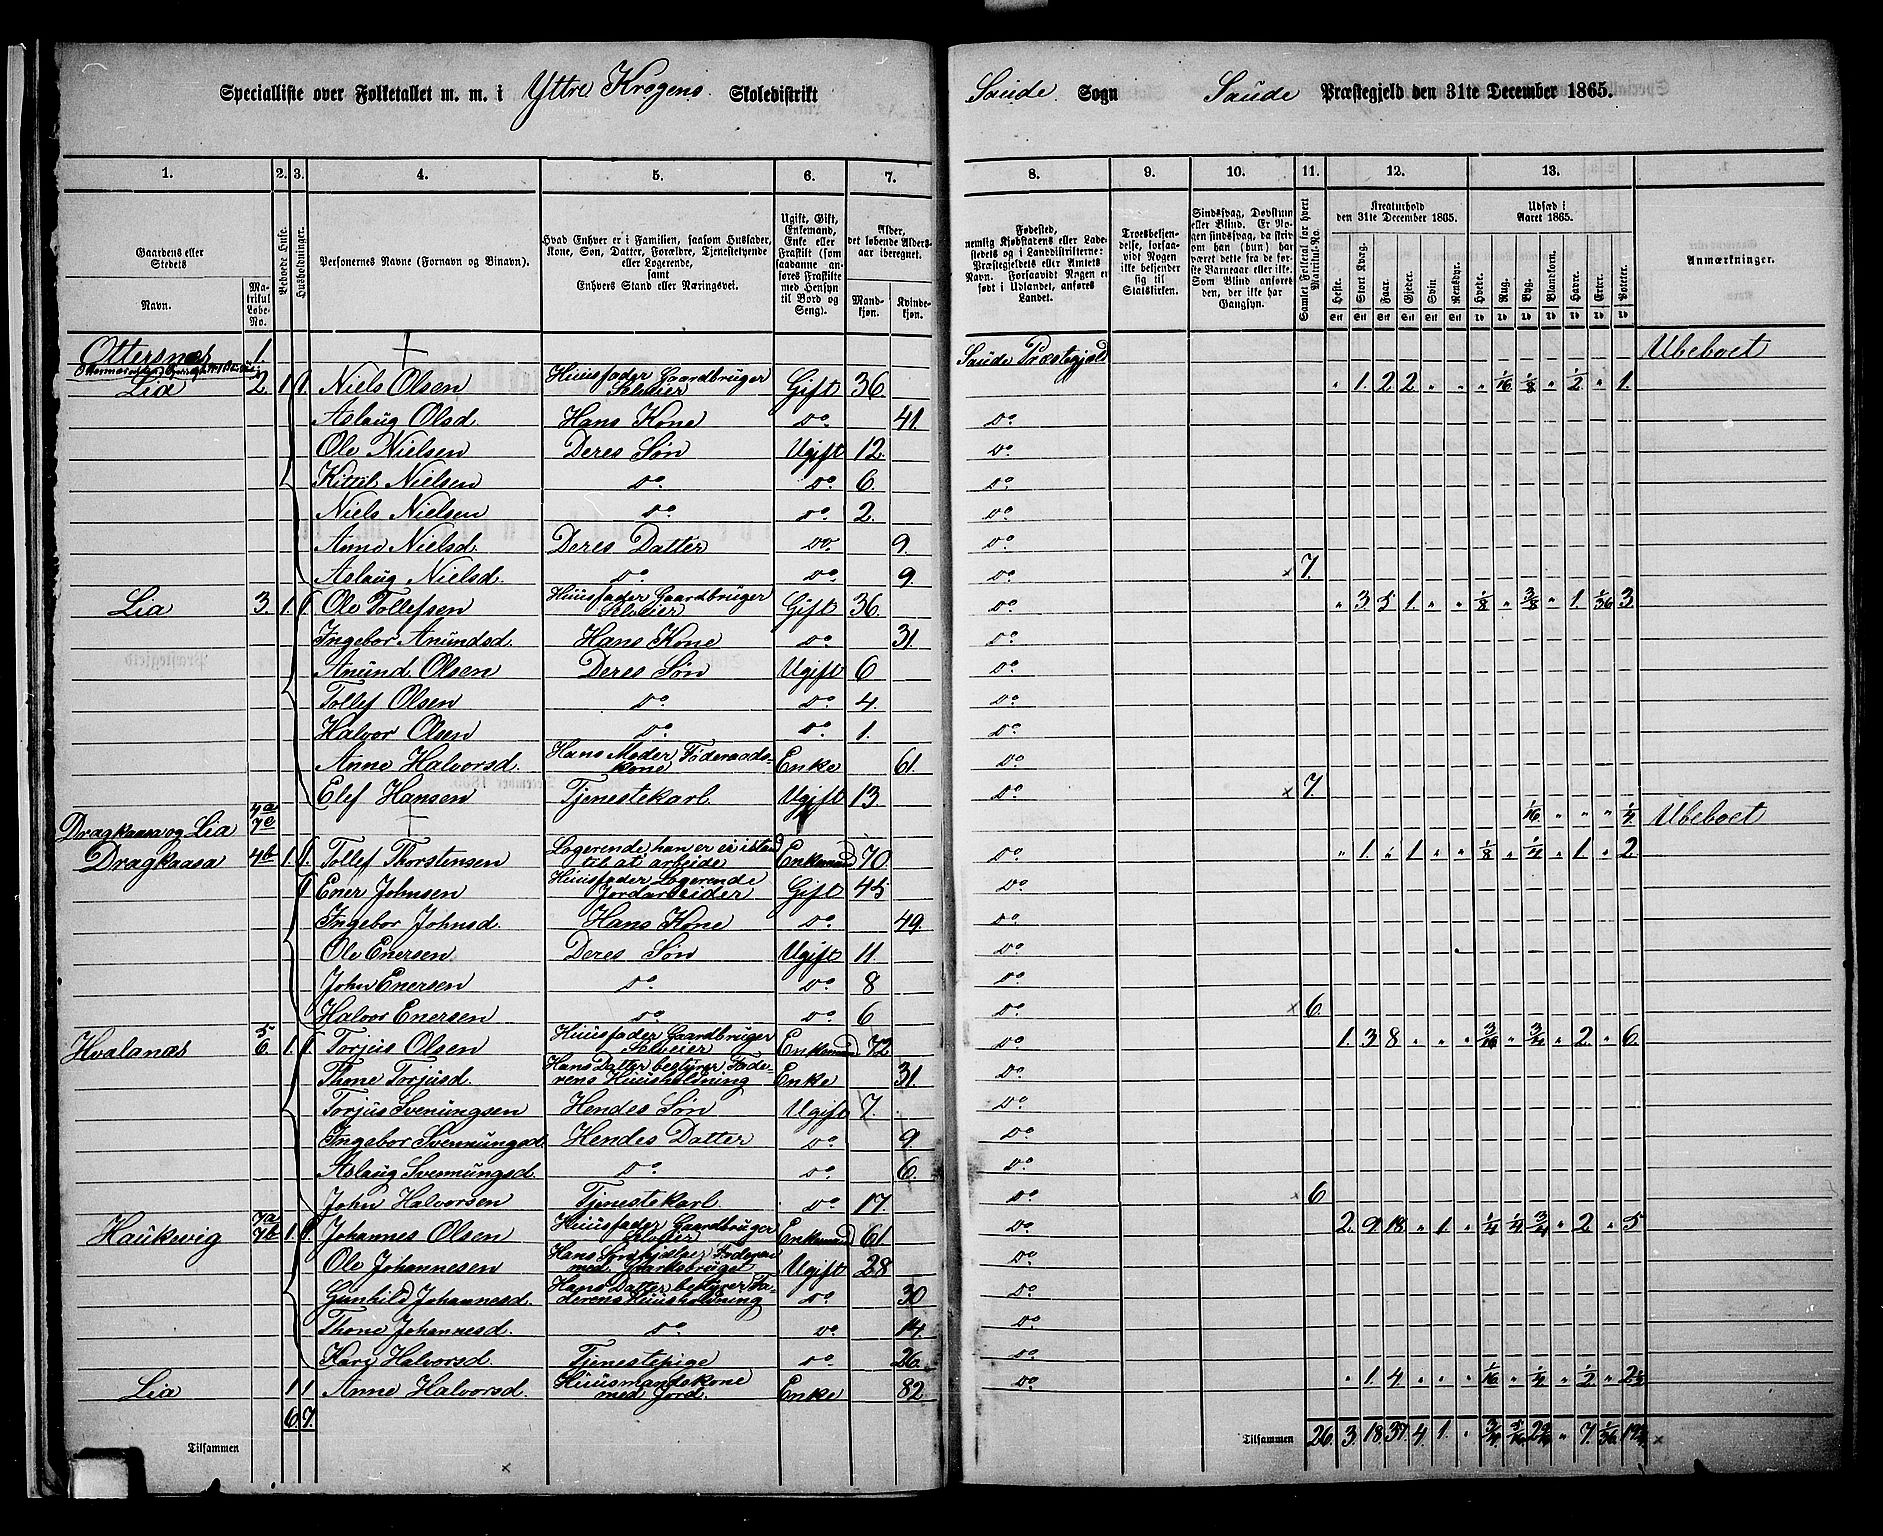 Specialliste over Folketallet m. m. i Yttre Kragens Skoledistrikt Saude Sogn Saude Præstegjeld den 31te December 1865.
1. 2. 3. 4. 5. 6. 7. 8. 9. 10. 11. 12. 13. 1.
Gaardens eller Stedets
Navn.
Matrikul Løbe-No.
Beboede Huse.
Husholdninger.
Personernes Navne (Fornavn og Binavn).
Hvad Enhver er i Familien, saasom Husfader, Kone, Søn, Datter, Forældre, Tjenestetyende eller Logerende, samt Enhvers Stand eller Næringsvei.
Ugift, Gift, Enkemand, Enke eller Fraskilt (som saadanne anføres Fraskilte med Hensyn til Bord og Seng).
Alder, det løbende Alders-aar iberegnet.
Mandkjøn. Kvindekjøn.
Fødested, nemlig Kjøbstadens eller Ladestedets og i Landdistrikterne: Præstegjeldets eller Amtets Navn. Forsaavidt Nogen er født i Udlandet, anføres Landet.
Troesbekjendelse, forsaavidt Nogen ikke bekjender sig til Statskirken.
Sindssvag, Døvstum eller Blind. Er Nogen sindssvag, da skrives om han (hun) har været dette fra de første Barneaar eller ikke. Som Blind ansøres den, der ikke har Gangsyn.
Samlet Folketal for hvert Matrikul-No.
Kreaturhold den 31te December 1865.
Heste. Stort Kvæg. Faar. Gjeder. Svin. Rensdyr.
Udsæd i Aaret 1865.
Hvede. Rug. Byg. Blandkorn. Havre. Erter. Poteter.
Anmærkninger.
Ottersnes 1 Saude Præstegjeld Ubeboet
Lia 2. 1. 1. Niels Olsen Huusfader Gaardbruger Selveier Gift 36. " 1. 2 2 " " " 1/16 1/8 " 1/2 " 1.
Aslaug Olsd. Hans Kone do. 41. do.
Ole Nielsen Deres Søn Ugift 12. do.
Kittil Nielsen do. do. 6. do.
Niels Nielsen do. do. 2. do.
Anne Nielsd. Deres Datter do. 9. do.
Aslaug Nielsd. do. do. 9. do. x 7.
Lia 3. 1. 1. Ole Tollefsen Huusfader Gaardbruger Selveier Gift 36. do. " 3 5 1. " " 1/8 " 3/8 " 1. 1/36 3.
Ingebor Anundsd. Hans Kone do. 31. do.
Anund Olsen Deres Søn Ugift 6 do.
Tollef Olsen do. do. 4. do.
Halvor Olsen do. do. 1. do.
Anne Halvorsd. Hans Moder Føderaadskone Enke 61. do.
Elef Hansen Tjenestekarl. Ugift 13 do. x 7.
Dragkaasa og Lia 4a 7c 1/16 " " " 1/4 Ubeboet
Dragkaasa 4b 1. 1. Tollef Thorstensen Logerende han er ei istand til at arbeide Enkemand 70. do. " 1. " 1 " " 1/8 " 1/4 " 1. " 2.
1 Ener Johnsen Huusfader Logerende Jordarbeider Gift 45 do.
Ingebor Johnsd. Hans Kone do. 49. do.
Ole Enersen Deres Søn Ugift 11. do.
John Enersen do. do. 8 do.
Halvor Enersen do. do. 6 do. x 6.
Hvalanæs 5 6. 1. 1. Torjus Olsen Huusfader Gaardbruger Selveier Enkemand 72. do. 1. 3 8 " " " 3/16 " 3/4 " 2. " 6.
Thone Torjusd. Hans Datter bestyrer Faderens Huusholdning Enke 31. do.
Torjus Svenungsen Hendes Søn Ugift 7. do.
Ingebor Svennungsd. Hendes Datter do. 9. do.
Aslaug Svennungsd. do. do. 6. do.
John Halvorsen Tjenestekarl. do. 17. do. x 6
Haukevig 7a 7b 1. 1. Johannes Olsen Huusfader Gaardbruger Selveier Enkemand 61. do. 2. 9 18 " 1 " 1/4 1/4 3/4 " 2. " 5
Ole Johannesen Hans Søn hjælper Faderen med Gaardsbruget Ugift 28 do.
Gunhild Johannesd. Hans Datter bestyrer Faderens Huusholdning do. 30 do.
Thone Johannesd. do. do. 14. do.
Kari Halvorsd. Tjenestepige do. 26. do.
Lia 1 1 Anne Halvorsd. Huusmandskone med Jord. Enke 82. do. " 1. 4 " " " 1/16 " 1/4 " 1/2 " 2 1/2
6. 7.
Tilsammen
Tilsammen 26. 3. 18. 37. 4. 1. " " 7.